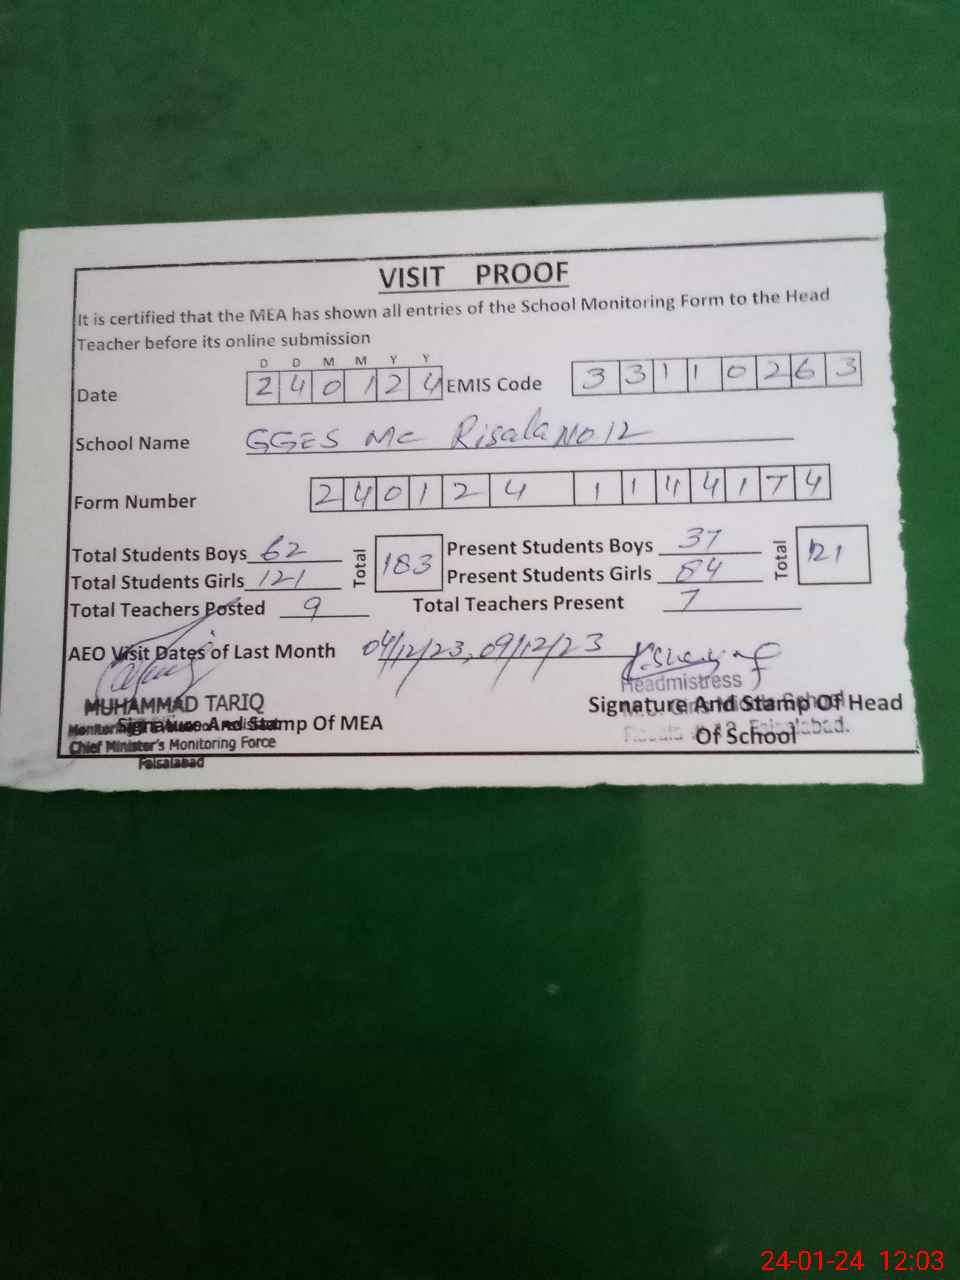 VISIT PROOF
It is certified that the MEA has shown all entries of the School Monitoring Form to the Head
Teacher before its online submission
D D M M Y Y
Date 2 4 0 1 2 4 EMIS Code 3 3 1 1 0 2 6 3
School Name GGES MC Risala No 12
Form Number 2 4 0 1 2 4 1 1 4 4 1 7 4
Total Students Boys 62 Total 183 Present Students Boys 37 Total 121
Total Students Girls 121 Present Students Girls 84
Total Teachers Posted 9 Total Teachers Present 7
AEO Visit Dates of Last Month 04/12/23, 09/12/23
Headmistress
MUHAMMAD TARIQ
Signature And Stamp Of MEA
Signature And Stamp Of Head
Of School
Chief Minister's Monitoring Force
Faisalabad
Faisalabad.
24-01-24 12:03